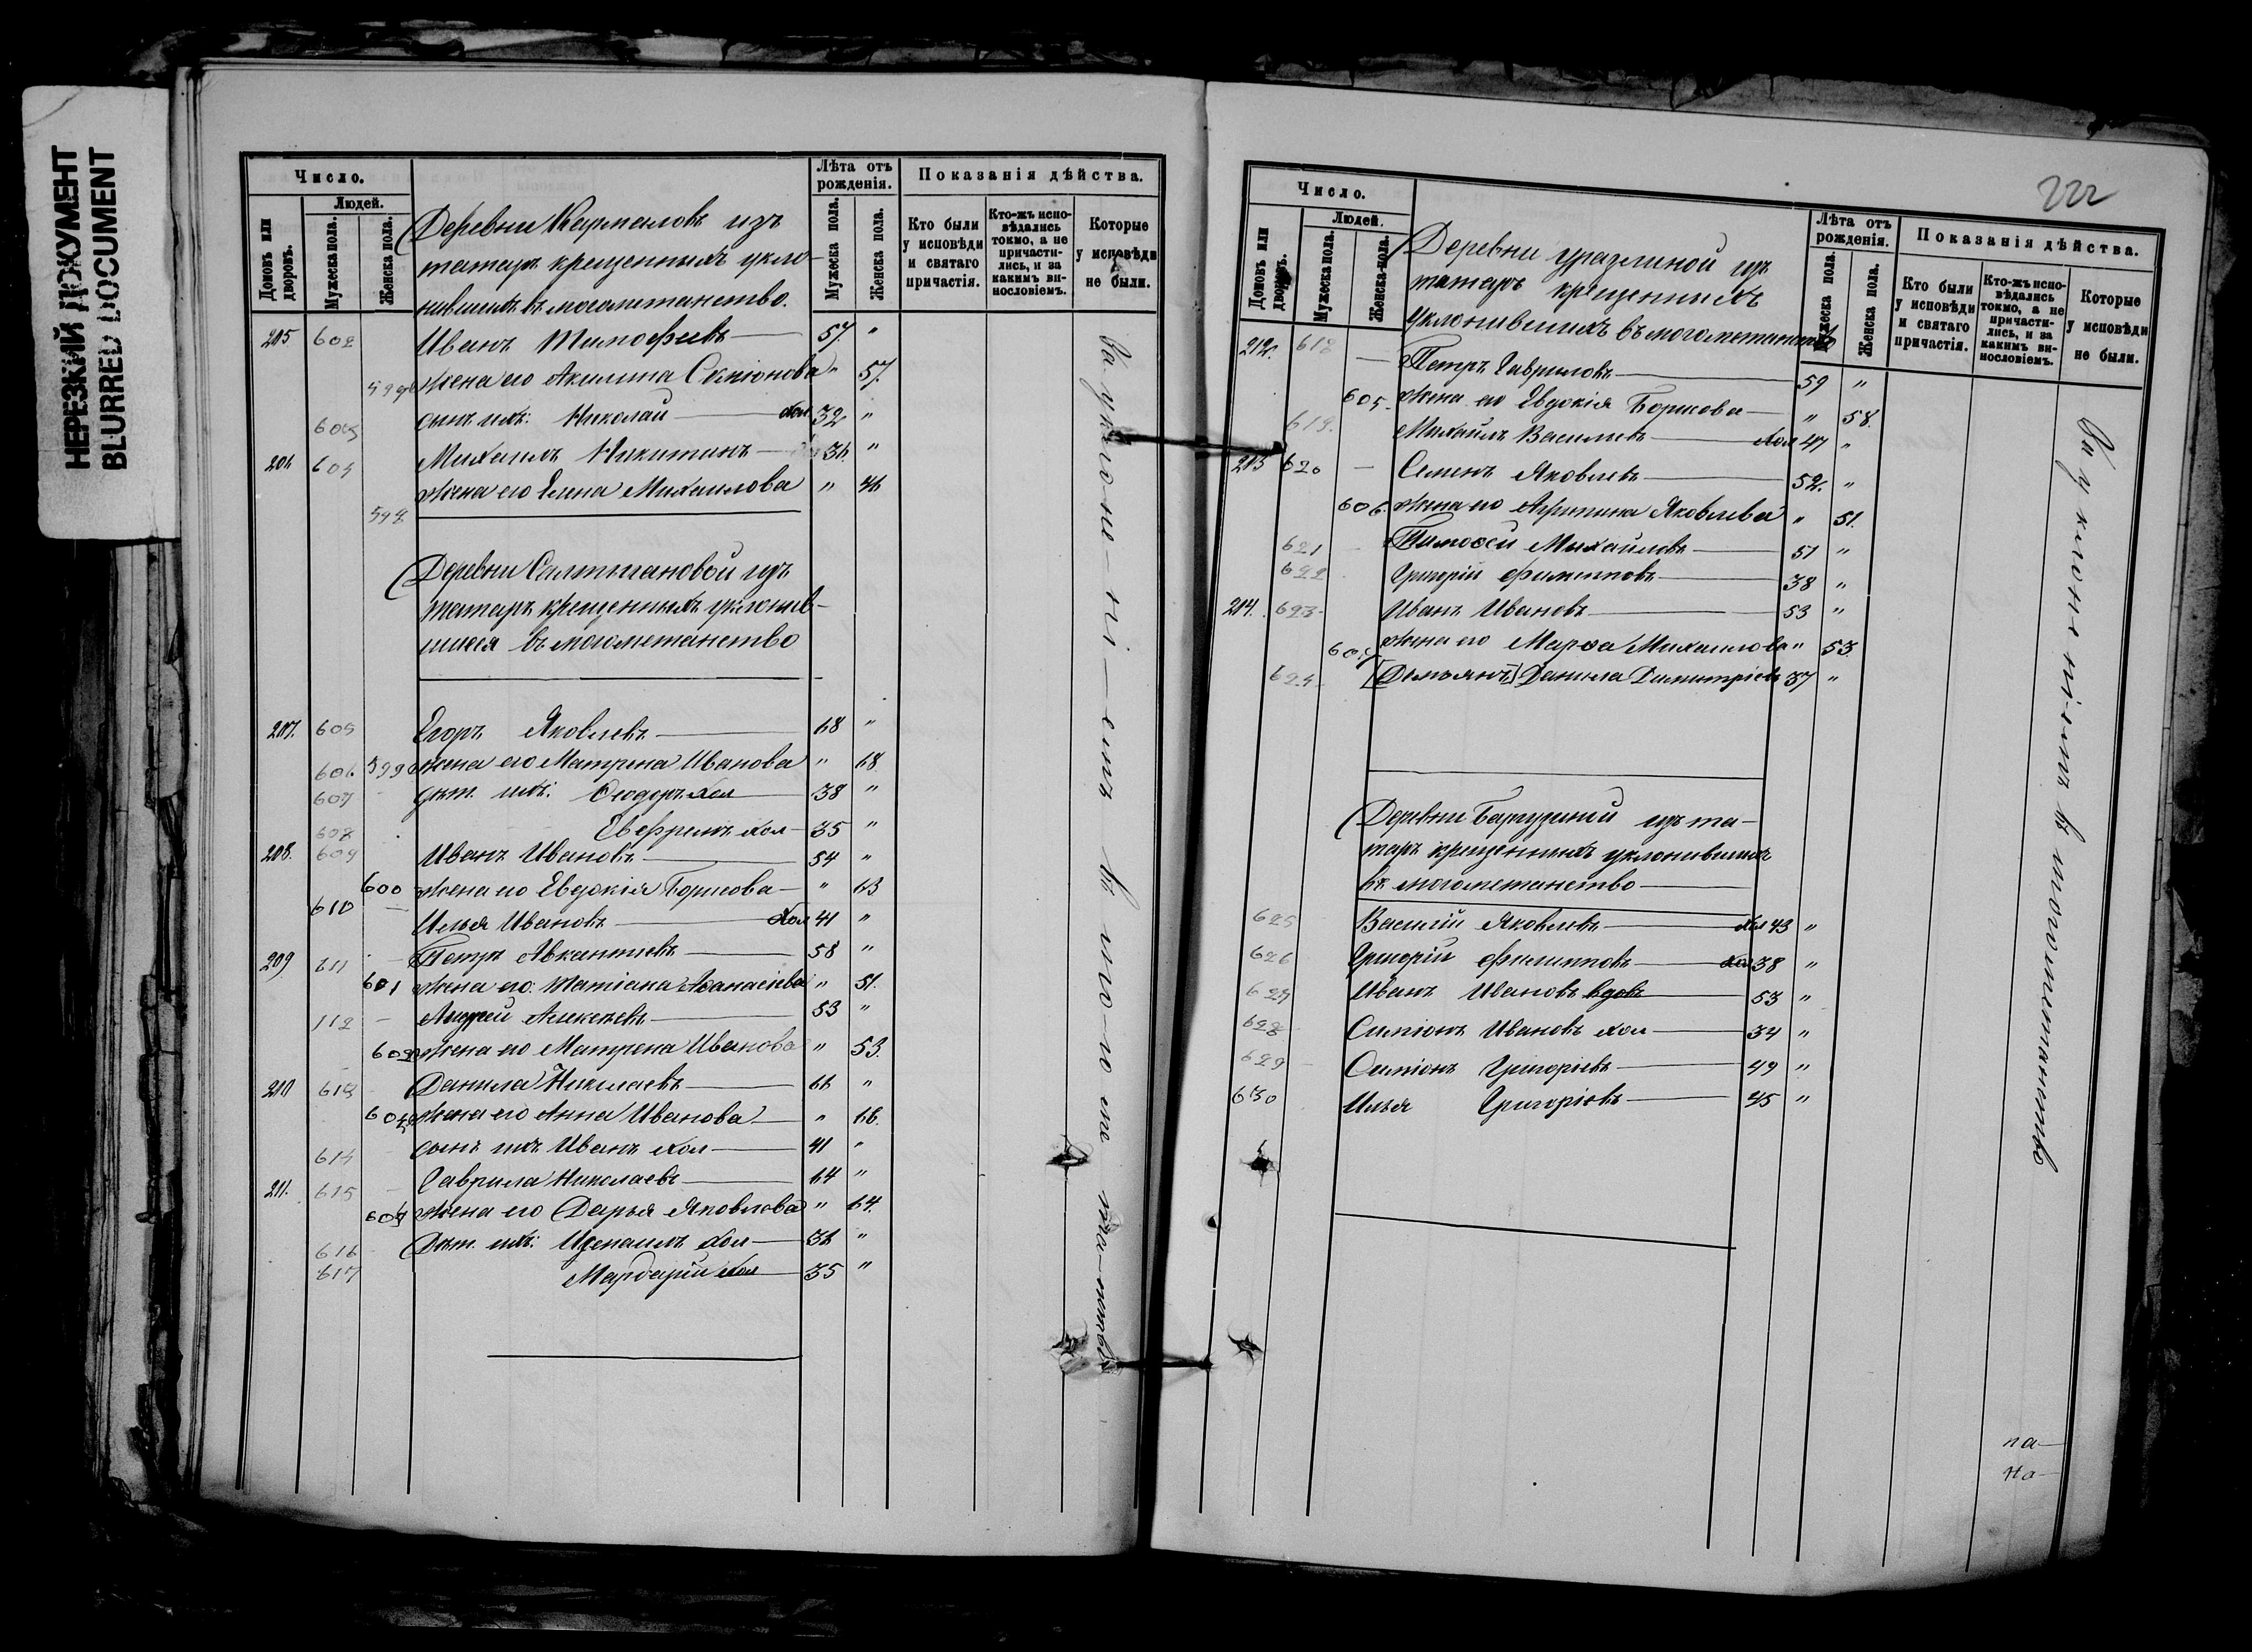 НЕРЕЗКИЙ ДОКУМЕНТ
BLURRED DOCUMENT
Число.
Людей.
Домовъ или дворовъ.
Мужеска пола.
Женска пола.
Лѣта отъ рожденія.
Мужеска пола.
Женска пола.
Показанія дѣйства.
Кто были у исповѣди и святаго причастія.
Кто-жъ исповѣдались токмо, а не причастились, и за какимъ винословіемъ.
Которые у исповѣди не были.
Деревни Кармаловъ изъ
татаръ крещенныхъ укло-
нившихъ въ могометанство.
205 602 Иванъ Тимофеевъ 57 "
жена его Акилина Семіонова " 57.
сынъ ихъ: Николай хол 32 "
206 604 Михаилъ Никитинъ 36 "
598 жена его Елена Михаилова " 46
Деревни Салтыгановой изъ
татаръ крещенныхъ уклонив-
шихся въ могометанство
207. 605 Егоръ Яковлевъ 68 "
606 599 жена его Матрена Иванова " 68
607 дѣт. ихъ: Ѳеодоръ хол 38 "
608 Евфремъ хол 35 "
208. 609 Иванъ Ивановъ 54 "
600 жена его Евдокія Борисова " 63
610 Илья Ивановъ хол 41 "
209 611 Петръ Авкантиевъ 58 "
601 жена его: Татіана Аѳанасіева " 51.
112 Андрей Алексѣевъ 53 "
602 жена его Матрена Иванова " 53.
210 613 Данила Николаевъ 66 "
603 жена его Анна Иванова " 66.
614 сынъ ихъ Иванъ хол 41 "
211. 615 Гаврила Николаевъ 64 "
604 жена его Дарья Яковлова " 64.
616 Дѣт. ихъ: Измаилъ хол 36 "
617 Мардарій хол 35 "
За уклоненіемъ въ могометанство
222
Число.
Людей.
Домовъ или дворовъ.
Мужеска пола.
Женска пола.
Лѣта отъ рожденія.
Мужеска пола.
Женска пола.
Показанія дѣйства.
Кто были у исповѣди и святаго причастія.
Кто-жъ исповѣдались токмо, а не причастились, и за какимъ винословіемъ.
Которые у исповѣди не были.
Деревни уразлиной изъ
татаръ крещенныхъ
уклонившихъ въ могометанство
212. 618 Петръ Гавриловъ 59 "
605. жена его Евдокія Борисова " 58.
619. Михаилъ Василіевъ хол 47 "
213 620 Семенъ Яковлевъ 52. "
606. жена его Агрипина Яковлева " 51.
621 Тимоѳей Михайловъ 51 "
622 Григорій Филипповъ 38 "
214. 623 Иванъ Ивановъ 53 "
607 жена его Марѳа Михаилова " 53.
624 [Демьянъ] Данила Димитріевъ 37 "
Деревни Баргузиный изъ та-
таръ крещенныхъ уклонившихъ
въ могометанство
625 Василій Яковлевъ хол 43 "
626 Григорій Филипповъ хол 38 "
627 Иванъ Ивановъ вдовъ 53 "
628 Симіонъ Ивановъ хол 34 "
629 Симіонъ Григорьевъ 49 "
630 Илья Григорьевъ 45 "
За уклоненіемъ въ могометанство
па-
на-